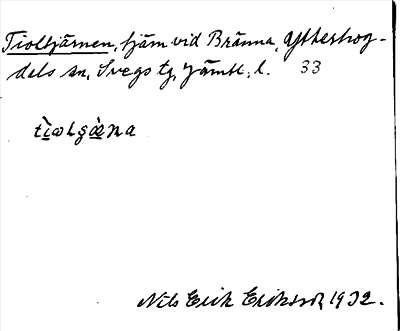 Tioltjärnen, tjärn vid Bränna, Ytterhog-
dals sn, Svegs tg, Jämtl. l. 33
tìolgæ̀na
Nils Erik Eriksson 1932.